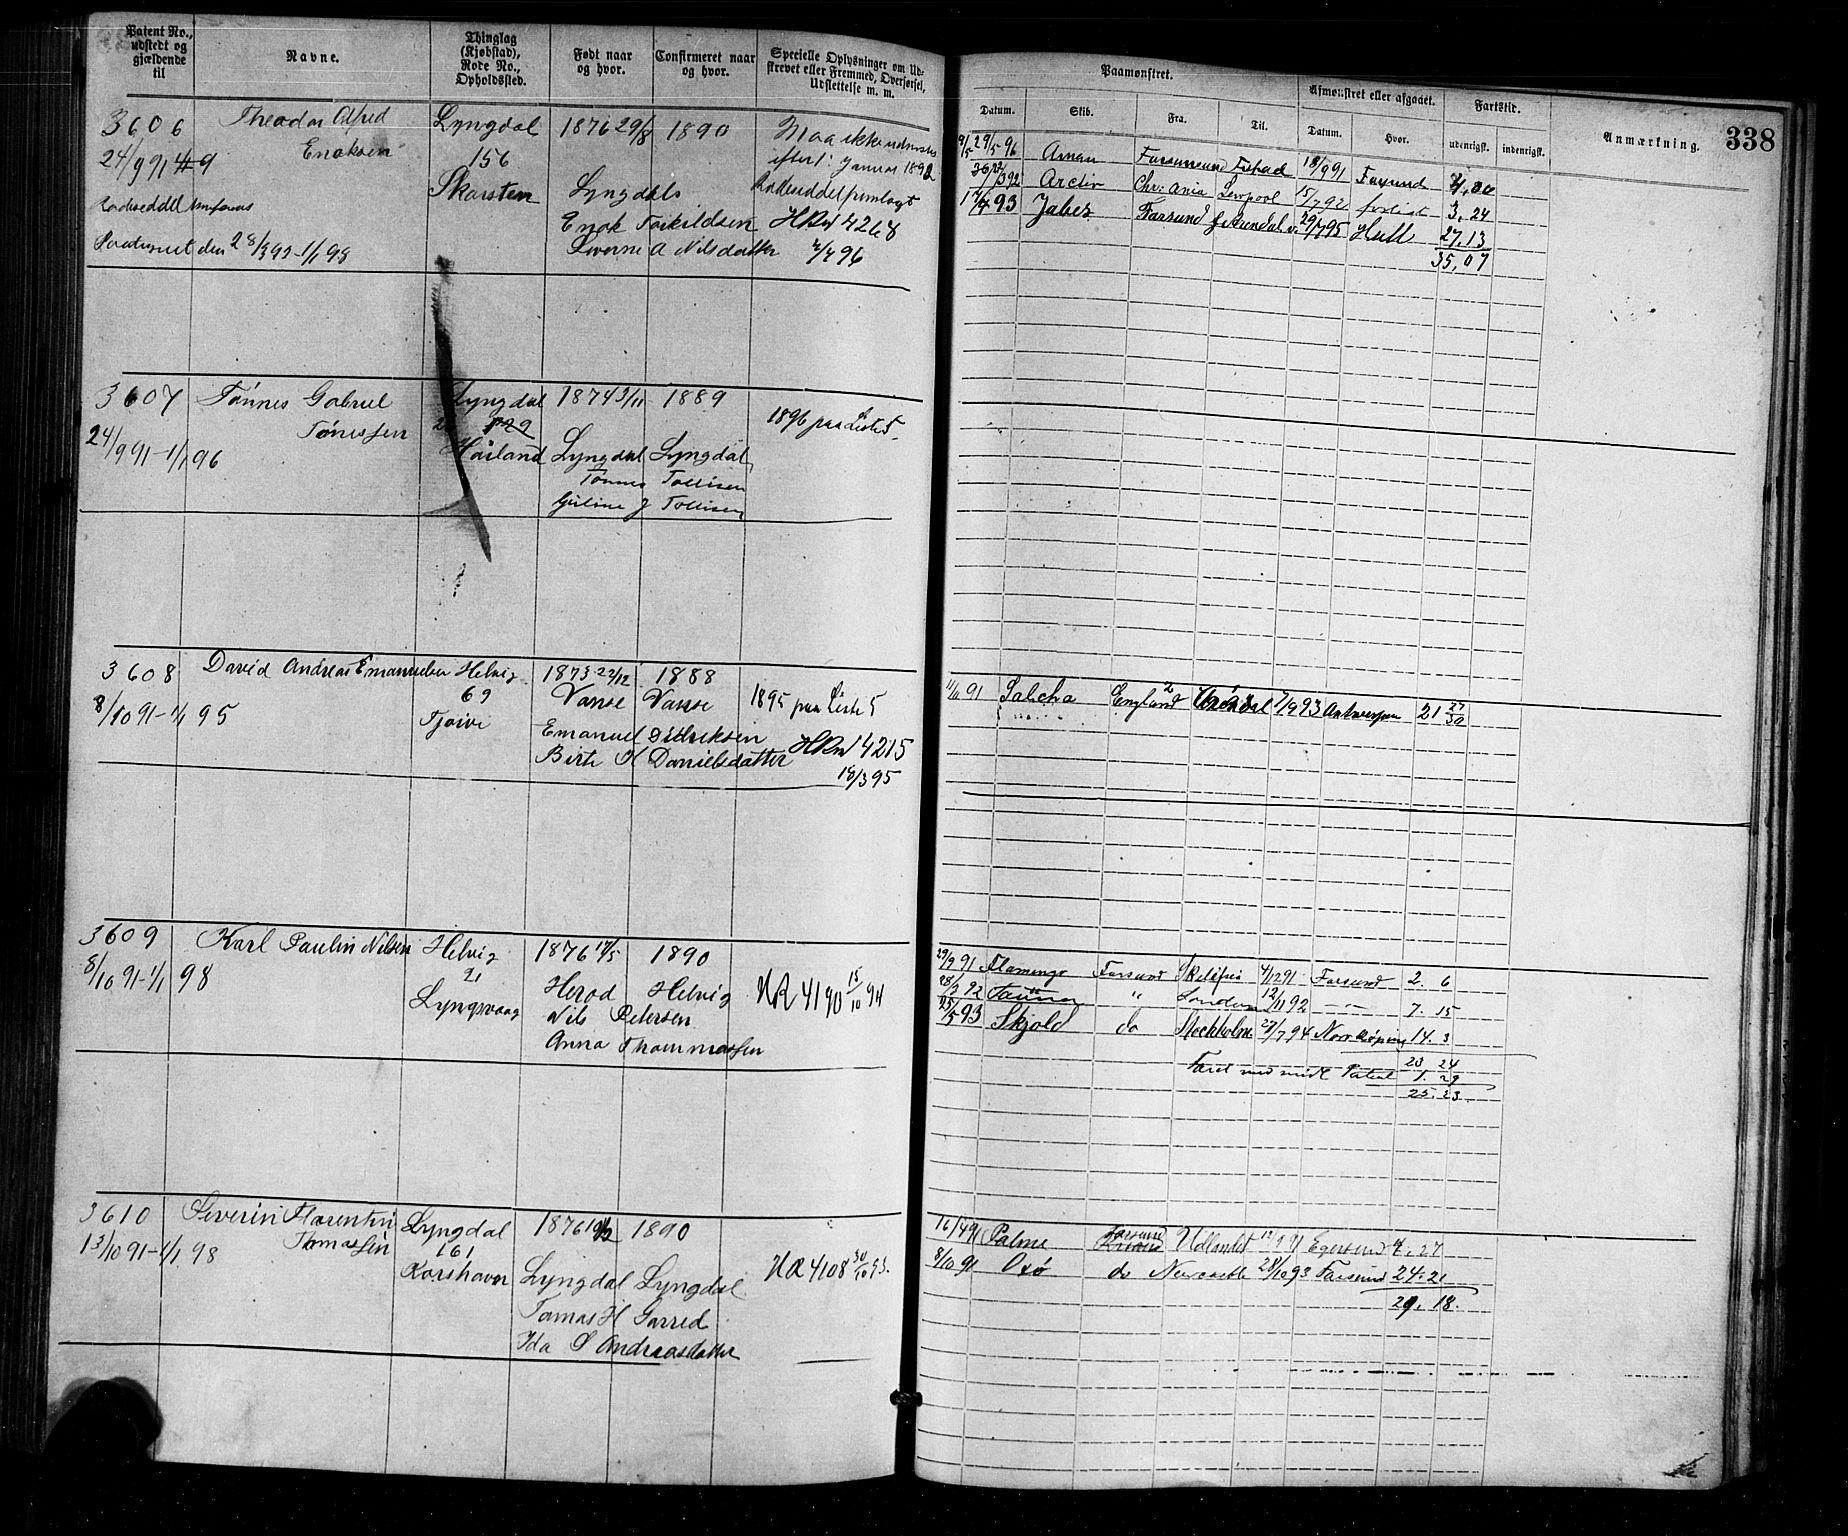 Patent No., udstedt og gjældende til
Navne.
Thinglag (Kjøbstad), Rode No., Opholdssted.
Født naar og hvor.
Confirmeret naar og hvor.
Specielle Oplysninger om Udskrevet eller Fremmed, Overførsel, Udslettelse m. m.
Paamønstret.
Afmønstret eller afgaaet.
Fartstid.
Anmærkning.
338
Datum.
Skib.
Fra.
Til.
Datum.
Hvor.
udenrigst.
indenrigst.
3606
Theodor Alfred
Enoksen
24/9 91
Lyngdal
156
Skarsten
1876 29/8
1890
Lyngdals
Enok Torkildsen
Nilsdatter
Maa ikke
Januar 1892
HRul 4268
2/4 96
28/3 92-1/1 98
29/5 96
Farsund
18/9 91
Farsund
92
Arctic
Chr:ania
Liverpool
15/7 92
forlist
3. 24
93
Jabez
Farsund
Arendal
29/7 95
Hull
27. 13
35, 07
3607
Tønnes Gabriel
Tønessen
24/9 91-1/1 96
Lyngdal
Høiland
1874 3/11
1889
Lyngdal
Lyngdal
Tønnes Tollisen
Guline J Tollisen
1896 paa Liste 5
3608
David Andreas Emanuelsen
8/10 91-1/1 95
Helvig
69
Tjøive
1873 22/12
1888
Vanse
Vanse
Emanuel Didriksen
Birte H Danielsdatter
1895 paa Liste 5
HRul 4215
18/3 95
91
Salcha
England
2/9 93
Antwerpen
21 27/30
3609
Karl Paulin Nilsen
8/10 91-1/1 98
Helvig
21
Lyngsvaag
1876 17/5
1890
Herod
Helvig
Nils Petersen
Anna Thommassen
HR 4190 15/10 94
29/9 91
Flamingo
Farsund
4/12 91
Farsund
2. 6
28/3 92
"
London
12/11 92
-"-
7. 15
25/5 93
Skjold
do
Stockholm
27/7 94
Norrkøping
14. 3
23 24
Faret med midl Patent
1. 29
25. 23.
3610
Severin Florentin
Tomassen
13/10 91-1/1 98
Lyngdal
161
Korshavn
1876
1890
Lyngdal
Lyngdal
Tomas H Garred
Ida S Andreasdatter
HR 4108 30/10 93.
16/4 91
Palme
Farsund
Udlandet
Egersund
4. 27
8/10 91
Oxø
do
Newcastle
28/10 93
Farsund
24. 21
29. 18.